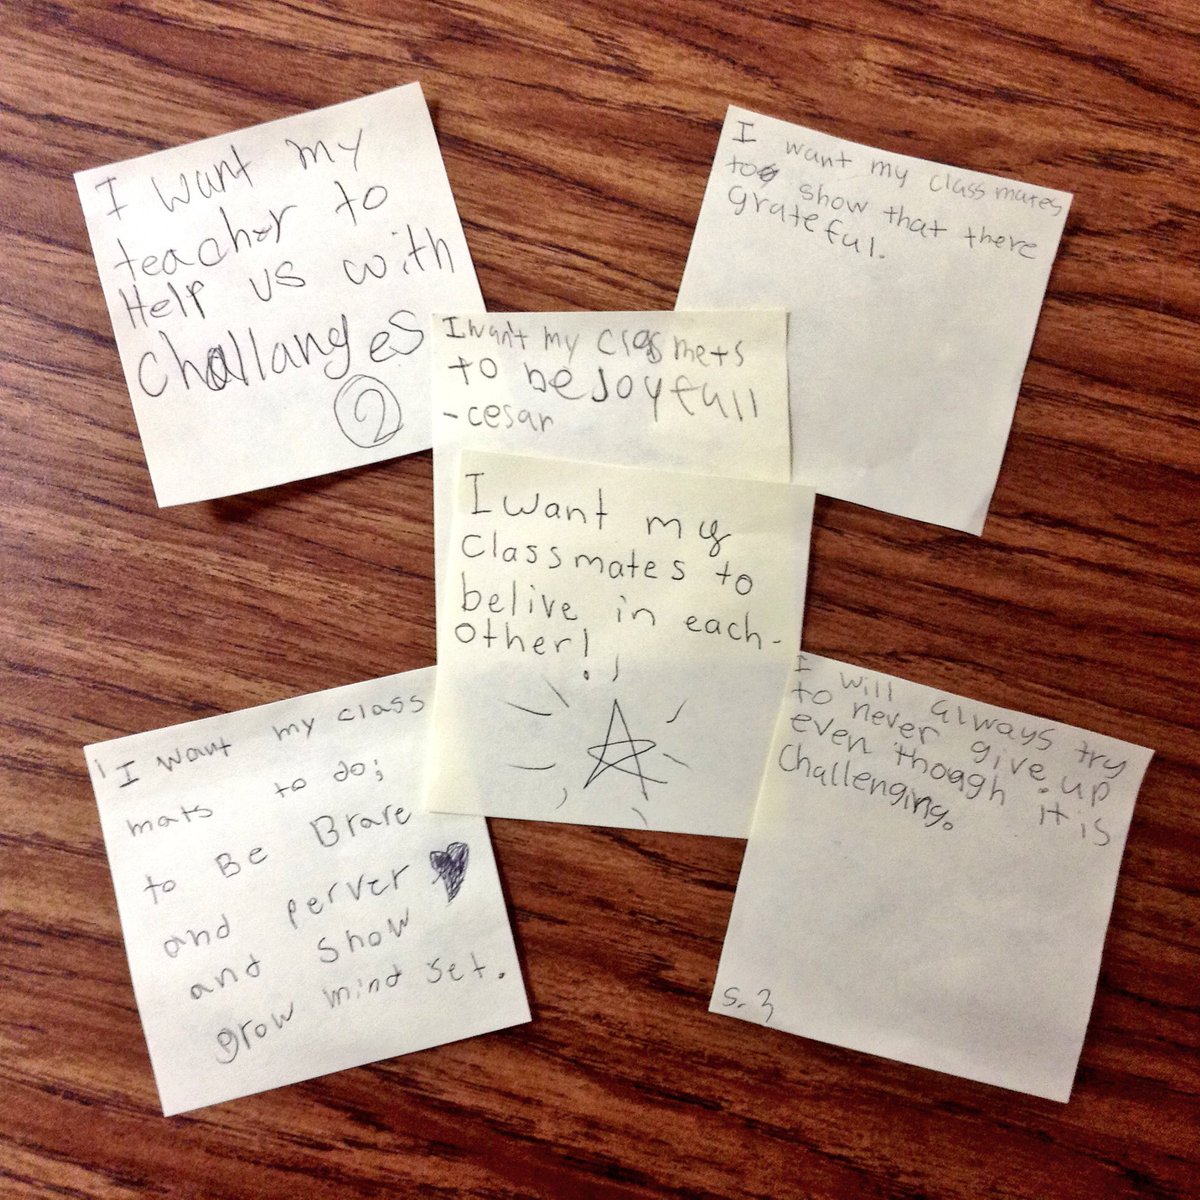 I want my
teacher to
Help us with
challanges
2
I want my class mates
to show that there
grateful.
I want my clasmets
to be Joyfull
-cesar
I want my
classmates to
belive in each-
other!
I want my class
mats to do;
to Be Brare
and perver
and show
grow mind set.
I will always try
to never give up
even though it is
challenging.
S. 3